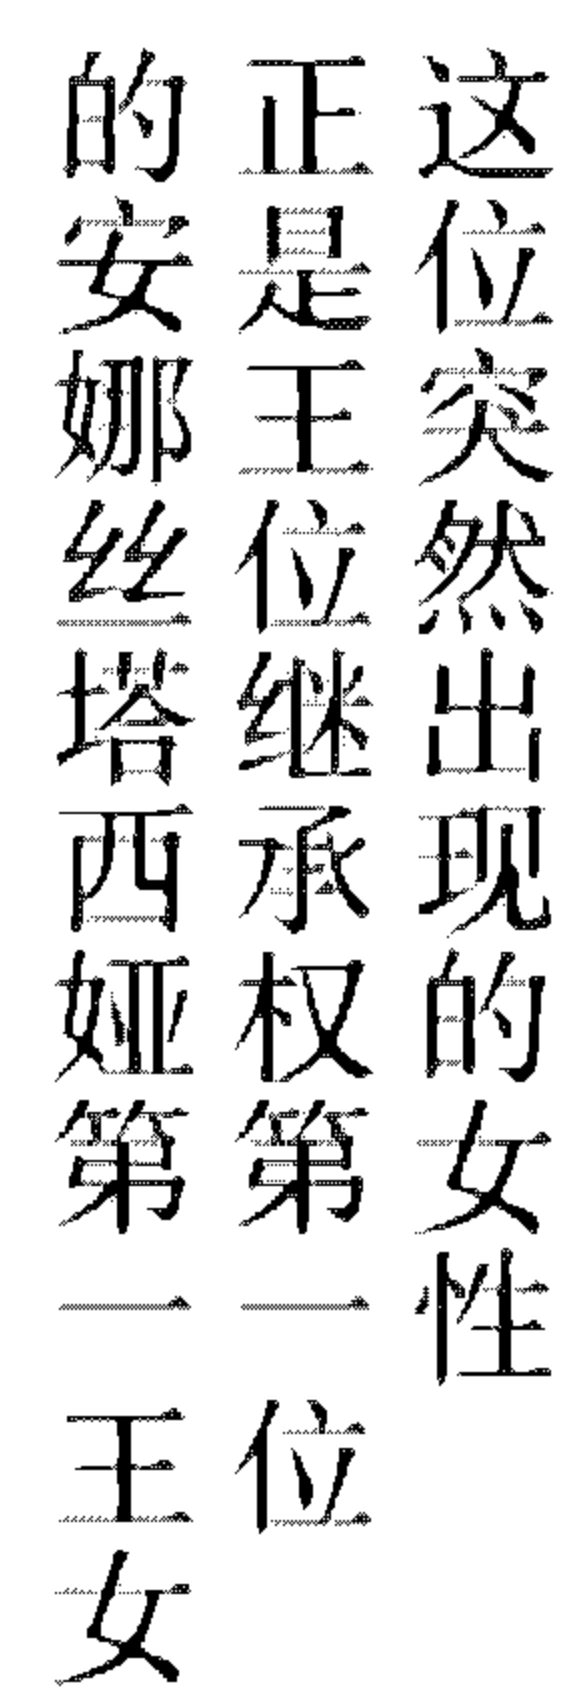 这位突然出现的女性
正是王位继承权第一位
的安娜丝塔西娅第一王女